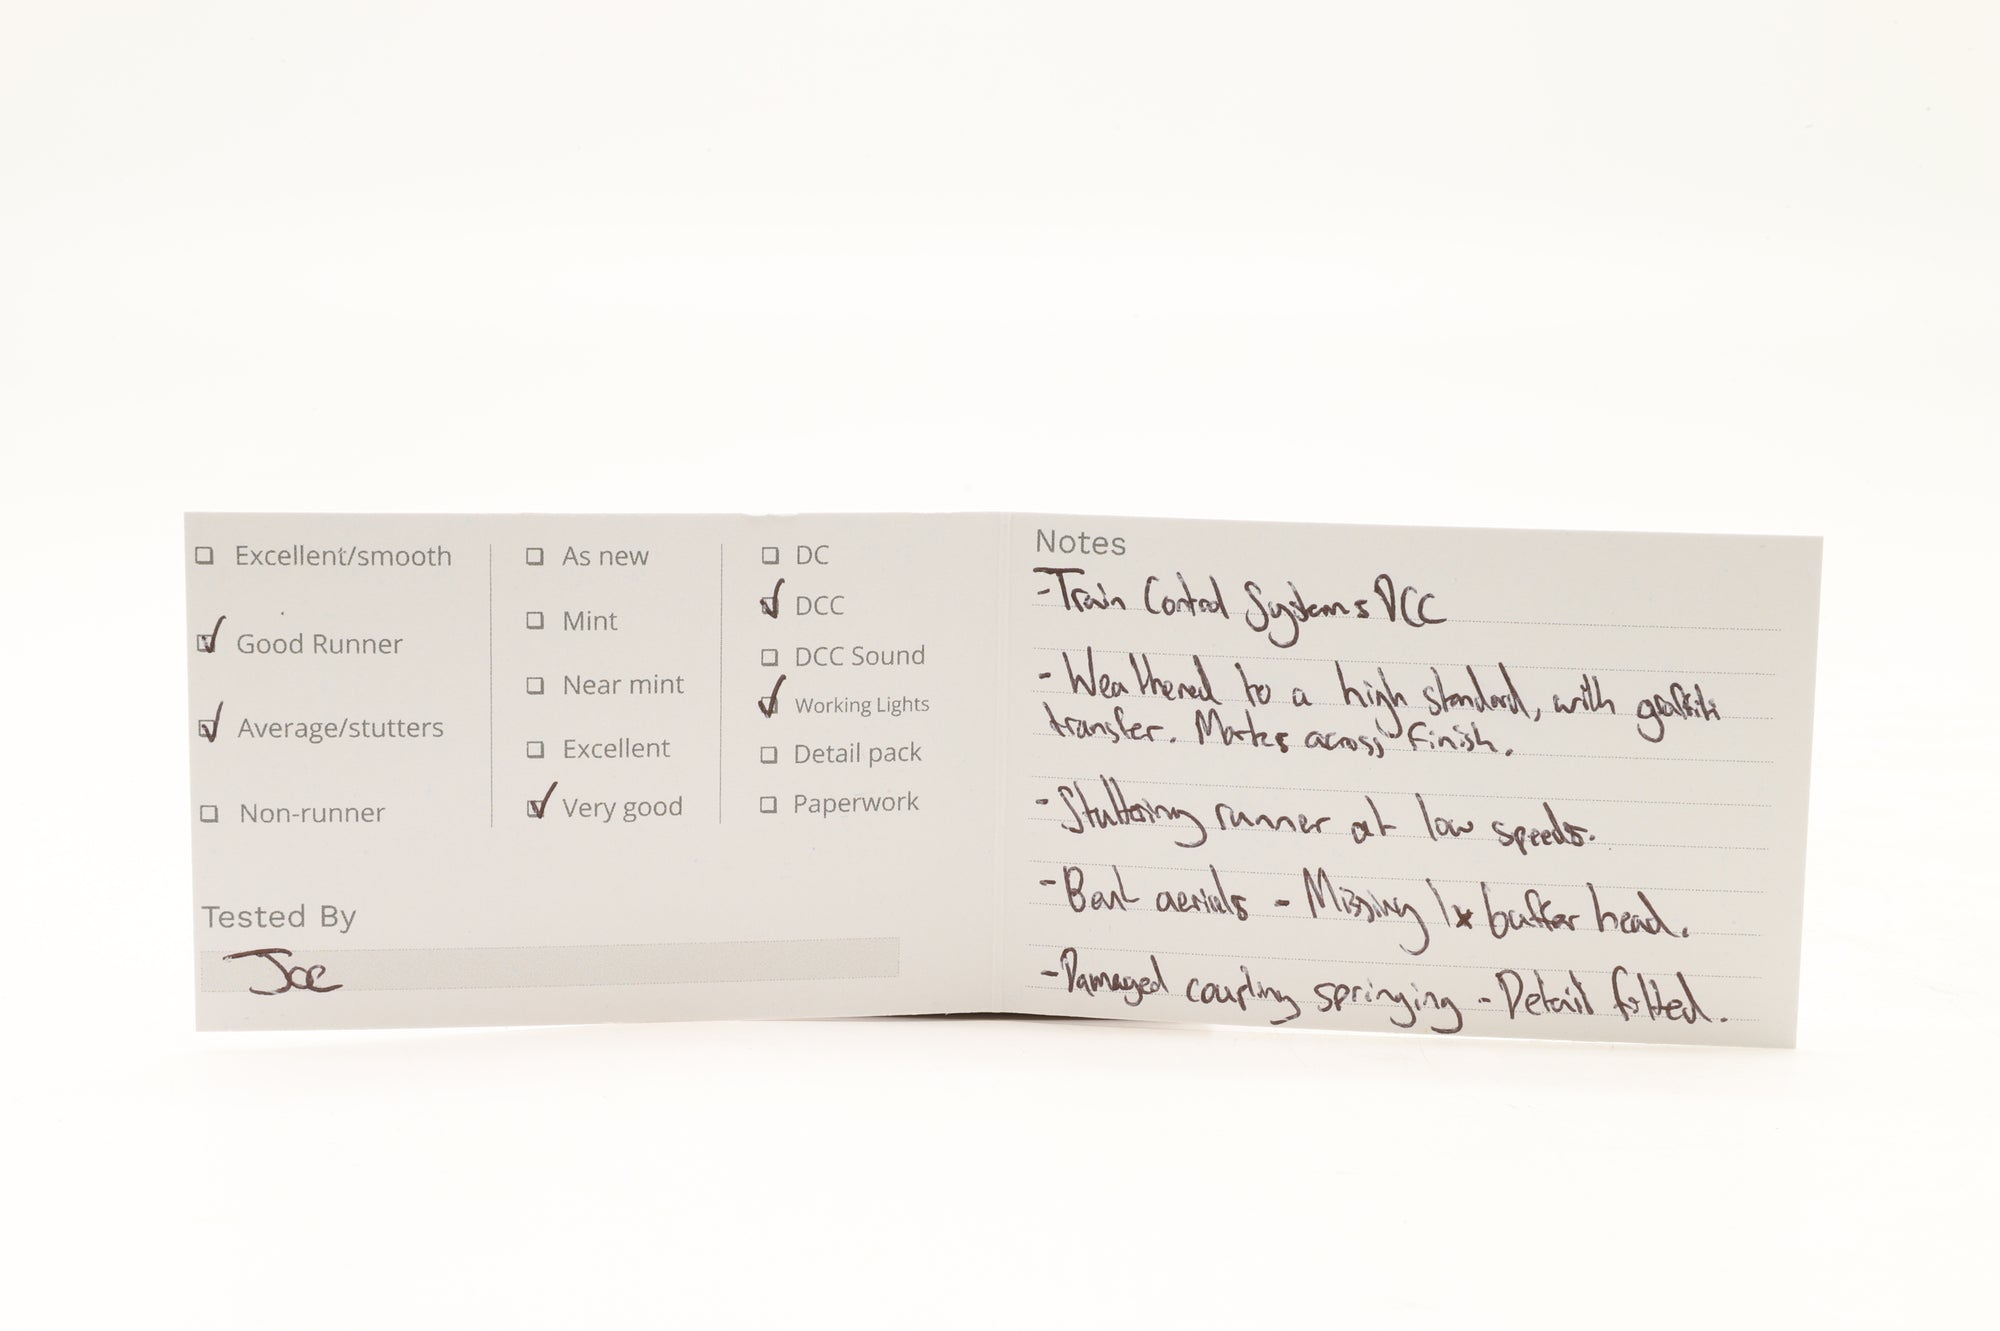 Excellent/smooth
Good Runner
Average/stutters
Non-runner
As new
Mint
Near mint
Excellent
Very good
DC
DCC
DCC Sound
Working Lights
Detail pack
Paperwork
Tested By
Joe
Notes
- Train Control Systems DCC
- Weathered to a high standard, with graffiti
transfer. Marks across finish.
- Stuttering runner at low speeds.
- Bent aerials - Missing 1x buffer head.
- Damaged coupling springing - Detail fitted.